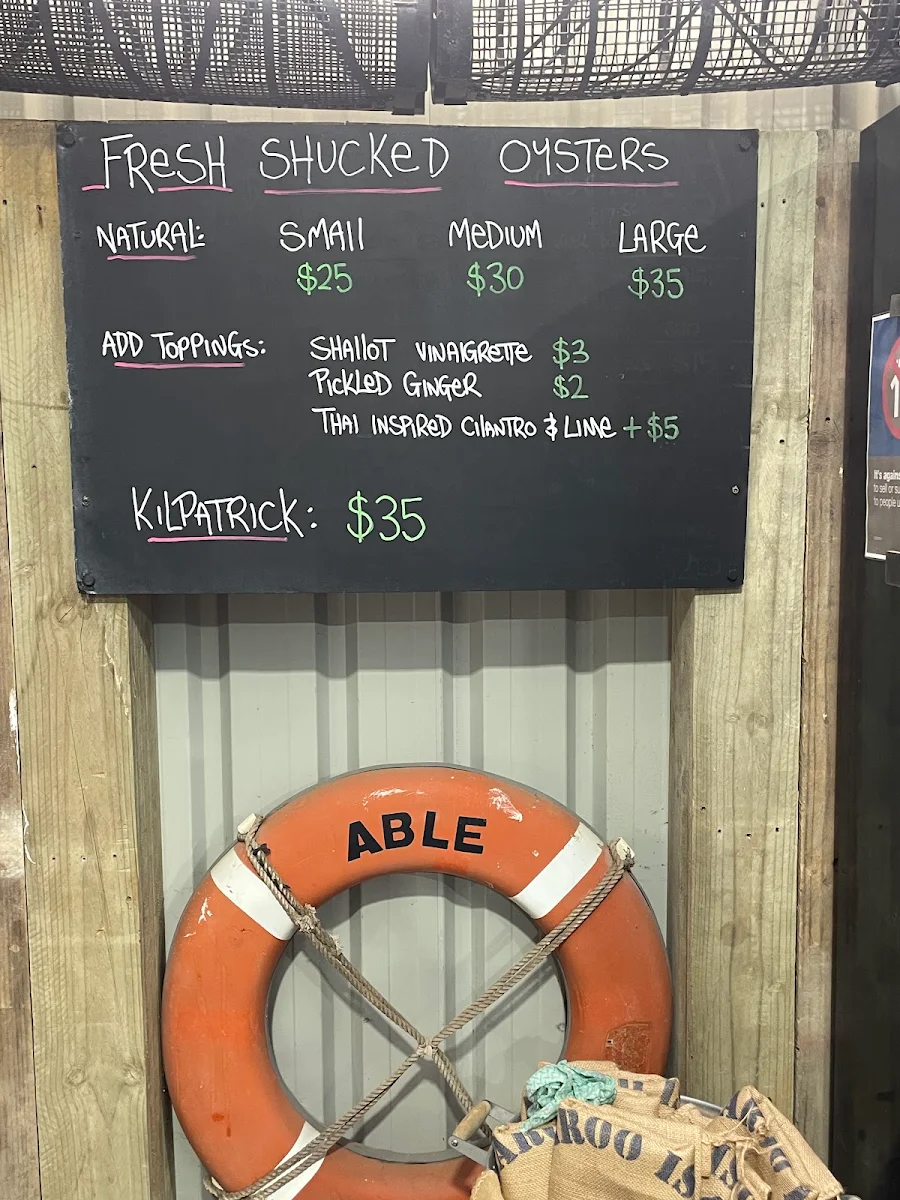 FRESH SHUCKED OYSTERS
NATURAL: SMALL MEDIUM LARGE
$25 $30 $35
ADD TOPPINGS: SHALLOT VINAIGRETTE $3
PICKLED GINGER $2
THAI INSPIRED CILANTRO & LIME + $5
KILPATRICK: $35
It's against
to sell or su
to people u
ABLE
ROO IS